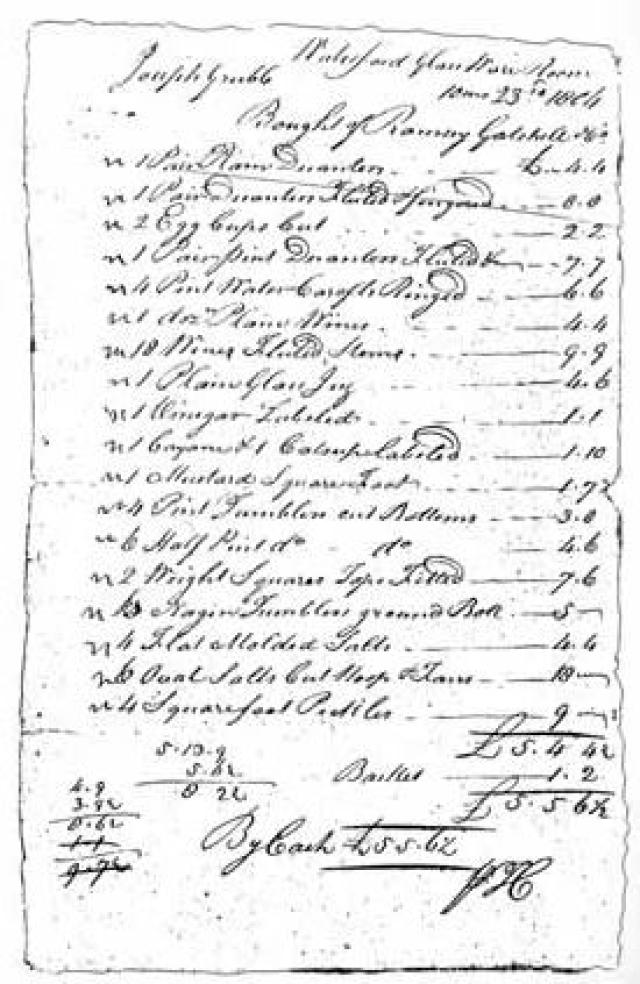 Waterford Glass Ware Room
Joseph Grubb
10mo 23rd 1804
Bought of Ramsey Gatchell & Co
1 Pair Plain Decanters £ - 4.4
1 Pair Decanters Fluted & Ringed 8.8
2 Egg Cups Cut 2.2
1 Pair Pint Decanters Fluted & 7.7
4 Pint Water Carofts Ringed 6.6
1 doz Plain Wines 4.4
18 Wines Fluted Stems 9.9
1 Plain Glass Jug 4.6
1 Vinegar Labeled 1.1
1 Cayane & 1 Catsup Labeled 1.10
1 Mustard Square Foot 1.7½
4 Pint Tumblers cut Bottoms 3.0
6 Half Pint do do 4.6
2 Weight Squares Tops Fitted 7.6
Tumblers ground Bott 5 -
4 Flat Molded Salts 4.4
6 Oval Salts Cut Hoop & Fans 18 -
4 Square foot Pickles 9 -
£ 5.4 4½
5.13.9
Basket 1.2
5.4½
8 2½
£ 5.5 6½
4.9
3.9½
8.6½
By Cash £5 5.6½
1 1
9.7½